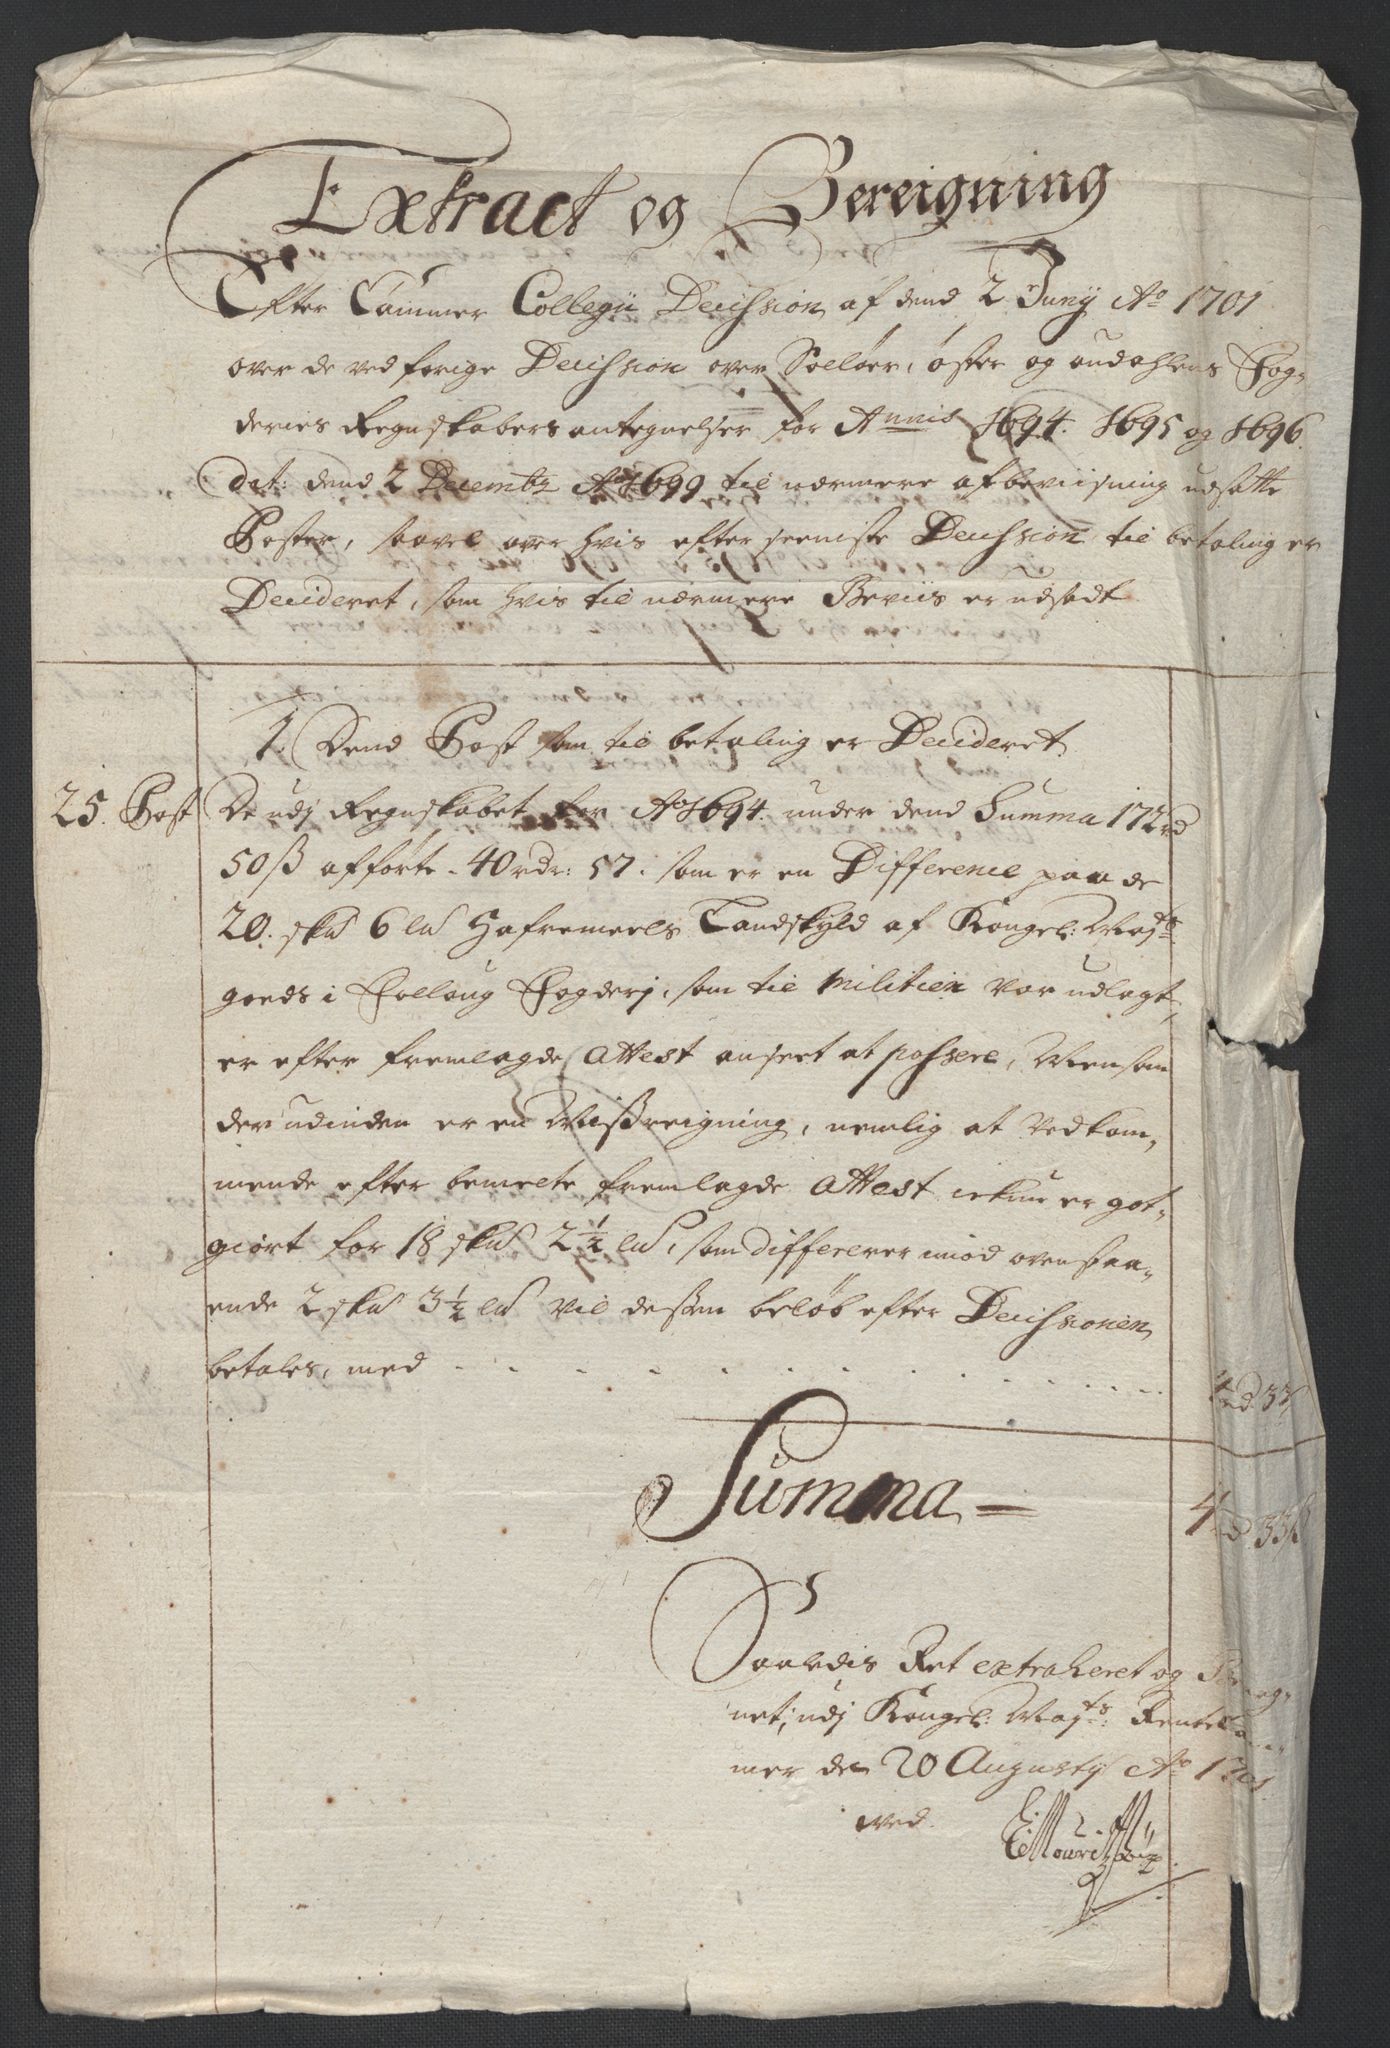 Extract og Bereigning
Efter Cammer Collegii Decission af dend 2 Junij Ao 1701
over de ved forige Decission over Soeløer, øster og oudahlens Fog-
deries Regnskabers antegnelser for Annis 1694. 1695 og 1696.
dat: dend 2 Decembr Ao 1699 til nærmere afbeviisning udsatte
Poster, saavel over hvis efter seeniste Decission til betaling er
Decideret, som hvis til nærmere Beviis er udsadt
1. Dend Post som til betaling er Decideret
25. Post De udj Regnskabet for Ao 1694. under dend Summa 172 rd
50 ß afførte - 40 rdr: 57. som er en Difference paa de
20. skd 6 ld Hafremeels Landskyld af Kongel: Mayts
goeds i Folloug Fogderj, som til Militien var udlagt,
er efter fremlagde Attest anseet at passere, Men som
der udinden er en Misreigning, nemlig at Vedkom-
mende efter bemelte fremlagde Attest ickun er got-
giørt for 18 skd 2½ ld, som differerer imod ovenstaa-
ende 2 skd 3½ ld vil dessen beløb efter Decissionen
betales, med - - - - - - - - - - 4 rd 33
Summa = 4 rd 33 ß
Saaledis Ret extraheret og Bereig-
net, udj Kongel: Mayts: Rentekam-
mer den 20 Augustij Ao 1701
ved